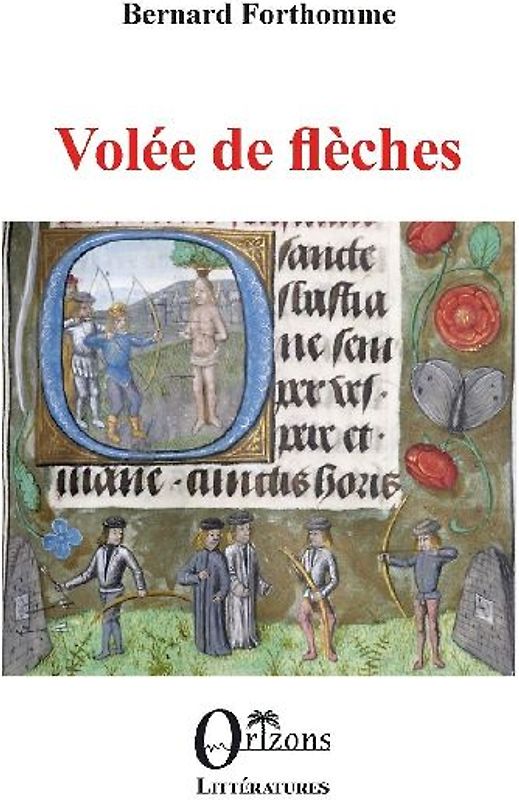 Bernard Forthomme
Volée de flèches
O sancte
sebastia
ne sem
per vespe
re et
mane. cunctis horis
Orizons
LITTÉRATURES